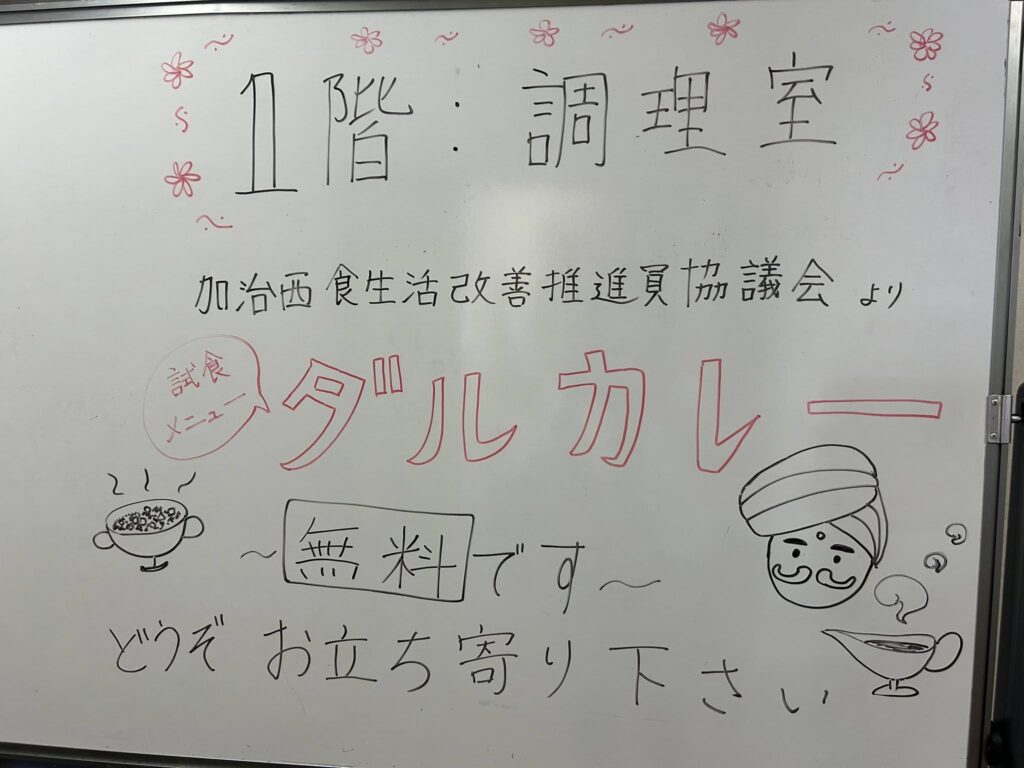 1階：調理室
加治西食生活改善推進員協議会 より
試食
メニュー
ダルカレー
～無料です～
どうぞ お立ち寄り下さい